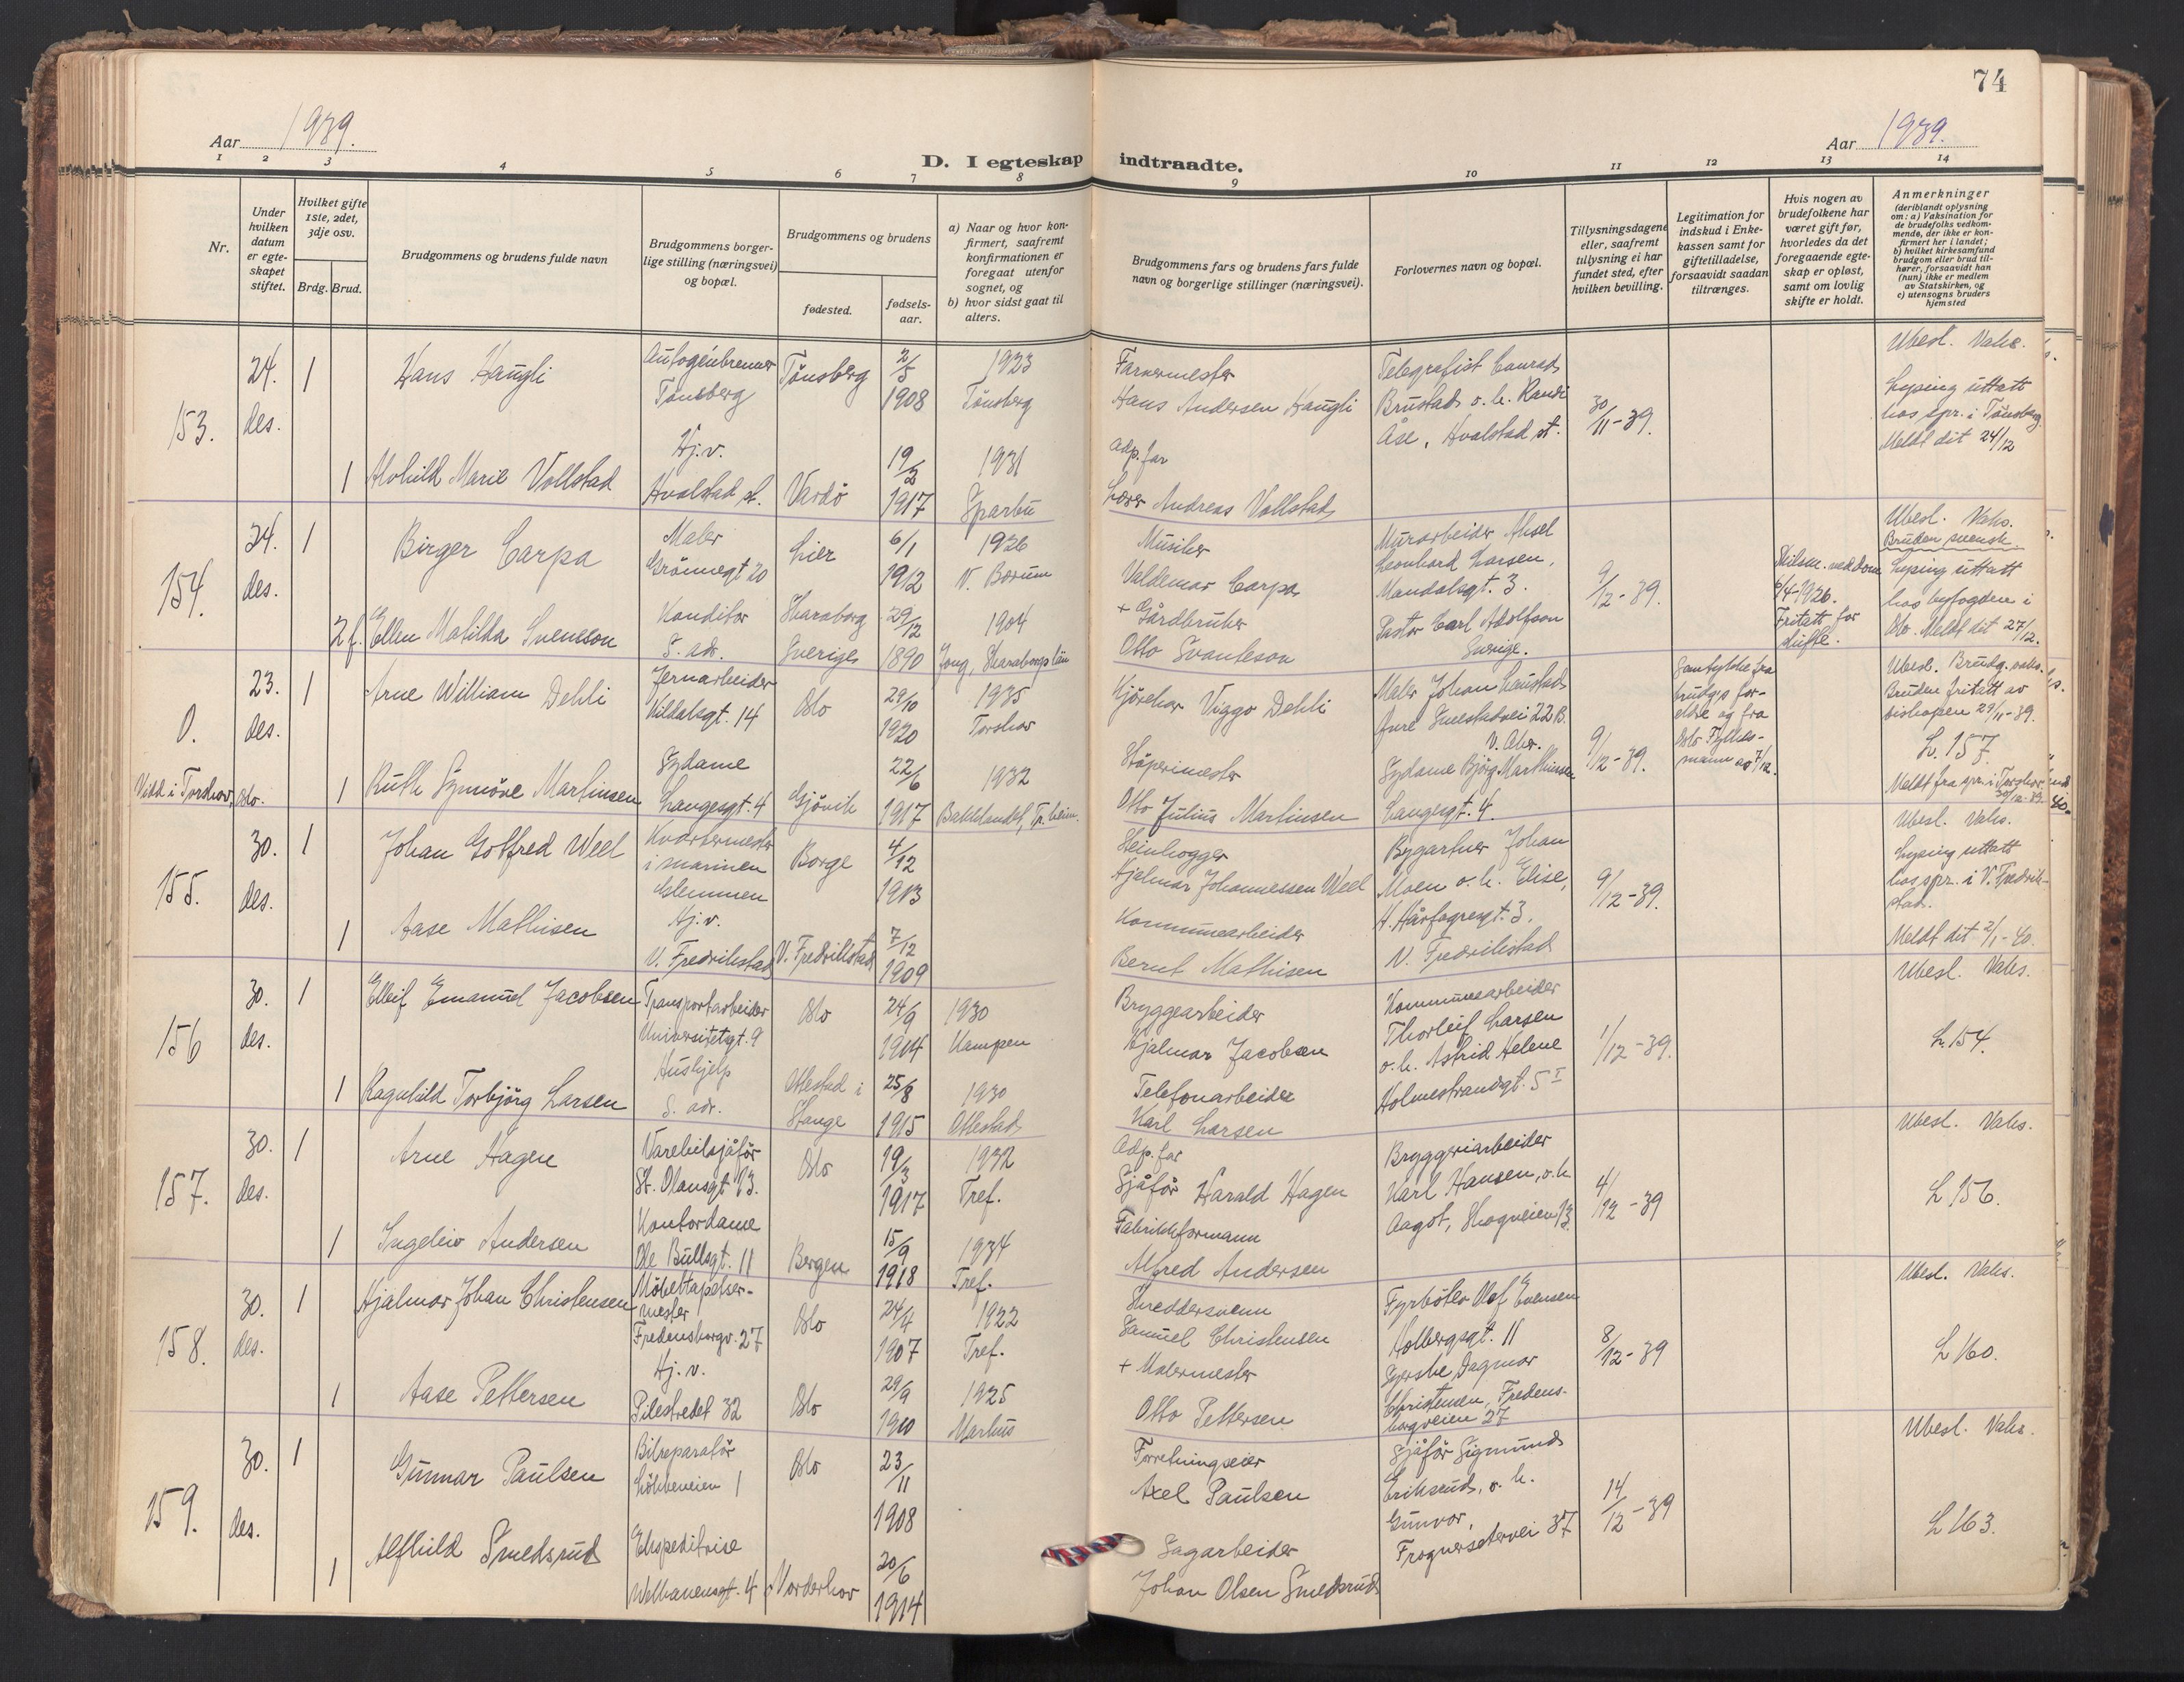 74
Aar 1939.
Aar 1939.
D. I egteskap indtraadte.
1 2 3 4 5 6 7 8 9 10 11 12 13 14
Nr.
Under hvilken datum er egteskapet stiftet.
Hvilket gifte 1ste, 2det, 3dje osv.
Brdg. Brud.
Brudgommens og brudens fulde navn
Brudgommens borgerlige stilling (næringsvei) og bopæl.
Brudgommens og brudens
fødested.
fødselsaar.
a) Naar og hvor konfirmert, saafremt konfirmationen er foregaat utenfor sognet, og
b) hvor sidst gaat til alters.
Brudgommens fars og brudens fars fulde navn og borgerlige stillinger (næringsvei).
Forlovernes navn og bopæl.
Tillysningsdagene eller, saafremt tillysning ei har fundet sted, efter hvilken bevilling.
Legitimation for indskud i Enkekassen samt for giftetilladelse, forsaavidt saadan tiltrænges.
Hvis nogen av brudefolkene har været gift før, hvorledes da det foregaaende egteskap er opløst, samt om lovlig skifte er holdt.
Anmerkninger
(deriblandt oplysning om: a) Vaksination for de brudefolks vedkommende, der ikke er konfirmert her i landet;
b) hvilket kirkesamfund brudgom eller brud tilhører, forsaavidt han (hun) ikke er medlem av Statskirken, og
c) utensogns bruders hjemsted
153.
24. des.
1
Hans Haugli
Autogenbrenner
Tønsberg
Tønsberg
2/5 1908
1923
Tønsberg
Farvermester
Hans Andersen Haugli
Telegrafist Conrad
Brustad o. h. Randi
Åse, Hvalstad st.
30/11-39.
Ubesl. Vaks.
Lysing uttatt
hos spr. i Tønsberg
Meldt dit 24/12
1
Alvhild Marie Vollstad
Hj. v.
Hvalstad st.
Vardø
19/2 1917
1931
Sparbu
Adp. far
Lærer Andreas Vollstad
154.
24. des.
1
Birger Carpa
Maler
Grönnegt 20
Lier
6/1 1912
1926
V. Bærum
Musiker
Valdemar Carpa
Murarbeider Aksel
Leonhard Larsen,
Mandalsgt. 3.
Pastor Carl Adolfson
Sverige.
9/12-39.
Skilsm. ved dom
6/4-1926.
Fritatt for
skifte.
Ubesl. Vaks.
Bruden svensk.
Lysing uttatt
hos byfogden i
Oslo. Meldt dit 27/12.
2 f.
Ellen Matilda Svenson
Konditor
S. adr.
Skaraborg
Sverige
29/12 1890
1904
Jong, Skaraborgs län
+ Gårdbruker
Otto Svanteson
0.
Viet i Torshov,
23. des.
Oslo.
1
Arne William Dehli
Jernarbeider
Kildalsgt. 14
Oslo
29/10 1920
1935
Torshov
Kjørekar Viggo Dehli
Maler Johan Laustad
Øvre Smestadvei 22 B.
V. Aker.
Sydame Bjørg Marthinsen
Langesgt. 4.
9/12-39.
Samtykke fra
brudgs for-
eldre og fra
Oslo Fylkes-
mann av 7/12.
Ubesl. Brudg. vaks.
Bruden fritatt av
biskopen 29/11-39.
L. 157.
Meldt fra spr. i Torshov
30/12-39.
1
Ruth Synnøve Martinsen
Sydame
Langesgt. 4
Gjövik
22/6 1917
1932
Bakklandet, Tr.heim.
Støperimester
Otto Julius Martinsen
155.
30. des.
1
Johan Gotfred Weel
Kvartermester
i marinen
Glemmen
Borge
4/12 1913
Steinhogger
Hjalmar Johannessen Weel
Bygartner Johan
Moen o. h. Elise,
H. Hårfagresgt. 3.
V. Fredrikstad
9/12-39.
Ubesl. Vaks.
Lysing uttatt
hos spr. i V. Fredrik-
stad.
Meldt dit 2/1-40.
1
Aase Mathisen
Hj. v.
V. Fredrikstad
V. Fredrikstad
7/12 1909
Kommunearbeider
Bernt Mathisen
156
30. des.
1
Elleif Emanuel Jacobsen
Transportarbeider
Universitetsgt. 9
Oslo
24/9 1904
1930
Kampen
Bryggearbeider
Hjalmar Jacobsen
Kommunearbeider
Thorleif Larsen
o. h. Astrid Helene
Holmestrandgt. 5 I
1/12-39.
Ubesl. Vaks.
L. 154.
1
Ragnhild Torbjørg Larsen
Hushjelp
S. adr.
Ottestad i
Stange
25/8 1915
1930
Ottestad
Telefonarbeider
Karl Larsen
157.
30. des.
1
Arne Hagen
Varebilsjåfør
St. Olavsgt 13.
Oslo
19/3 1917
1932
Tref.
Adp. far
Sjåfør Harald Hagen
Bryggeriarbeider
Karl Hansen, o. h
Aagot, Skogveien 13
4/12-39
Ubesl. Vaks.
L 156.
1
Ingeleiv Andersen
Kontordame
Ole Bullsgt. 11
Bergen
15/9 1918
1934
Tref.
Fabrikkformann
Alfred Andersen
158.
30. des.
1
Hjalmar Johan Christensen
Møbeltapetser-
mester
Fredensborgv. 27
Oslo
24/4 1907
1922
Tref.
Skreddersvenn
Samuel Christensen
Fyrbøter Olaf Evensen
Holbergsgt. 11
Syerske Dagmar
Christensen, Fredens-
borgveien 27
8/12-39
Ubesl. Vaks.
L 160.
1
Aase Pettersen
Hj. v.
Pilestredet 32
Oslo
29/9 1910
1925
Markus
+ Malermester
Otto Pettersen
159.
30. des.
1
Gunnar Paulsen
Bilreparatör
Løkkeveien 1
Oslo
23/11 1908
Forretningseier
Axel Paulsen
Sjåfør Sigmund
Eriksrud, o. h.
Gunvor,
Frognersetervei 37
14/12-39
Ubesl. Vaks.
L 163.
1
Alfhild Smedsrud
Ekspeditrise
Welhavensgt. 4
Norderhov
20/6 1914
Sagarbeider
Johan Olsen Smedsrud